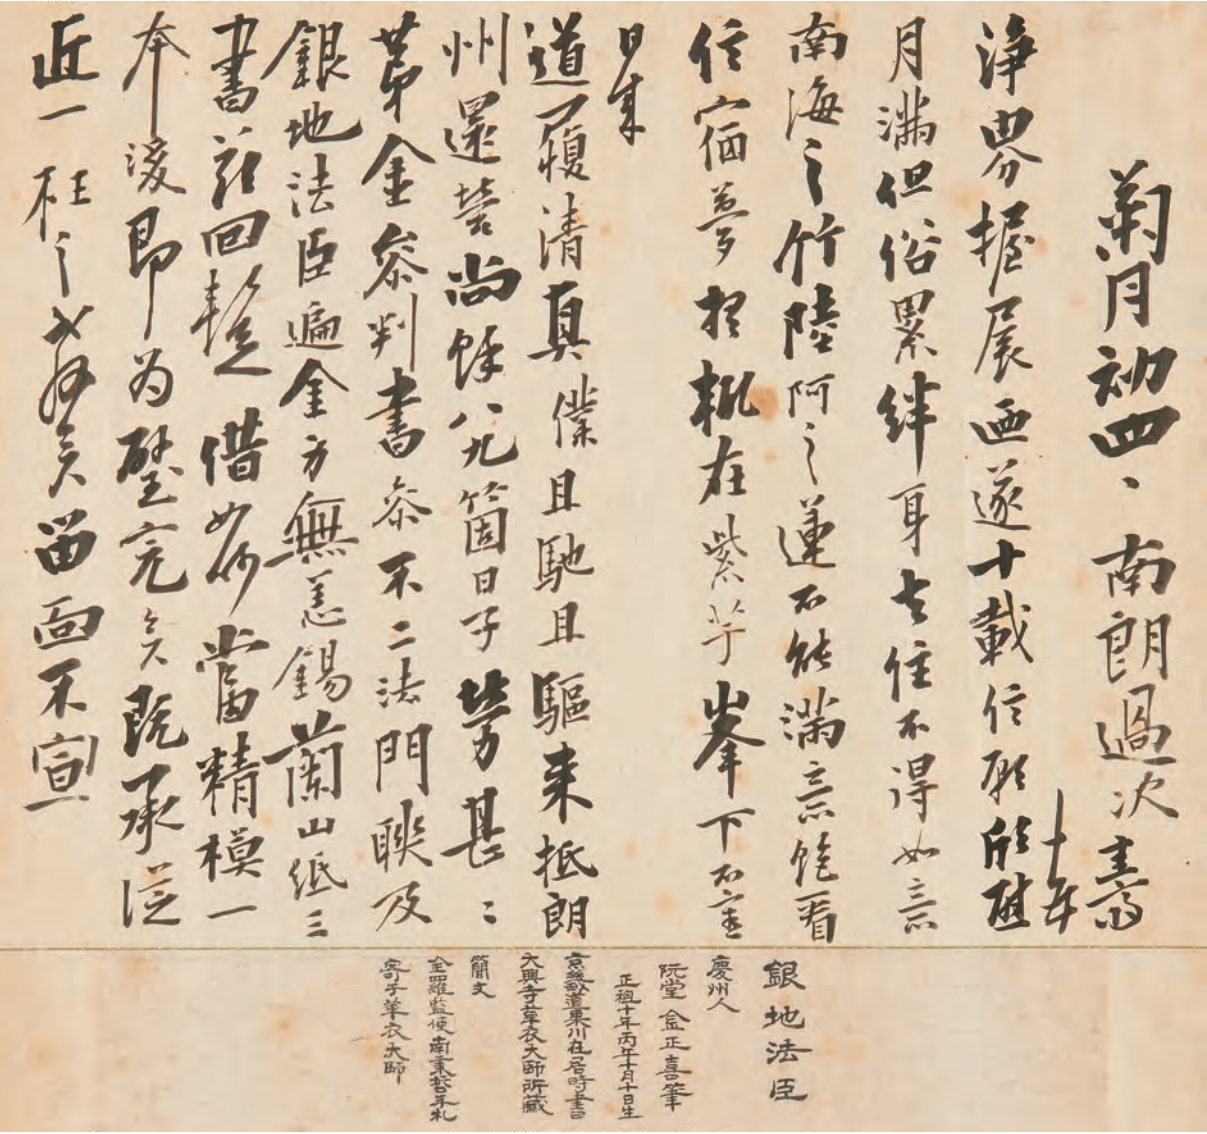 菊月初四、南朗過次壽
十年
淨界握展迺遂十載信願欣慰
月滿但俗累絆身去住不得如意
南海之竹陸阿之蓮不能滿意飽看
信宿夢想概在紫芋峯下不審
日來
道履清真僕且馳且驅来抵朗
州還營尚餘八九箇日子勞甚〻
第金參判書泰不二法門聯及
銀地法臣遍金方無恙錫蘭山紙三
書茲回 借 當精模一
本後即为璧完矣既承從
近一枉之教矣留面不宣
銀地法臣
慶州人
阮堂金正喜筆
正祖十年丙午十月十日生
京畿道果川在居時書
大興寺草衣大師所藏
簡文
全羅監使南秉哲年札
寄于草衣大師